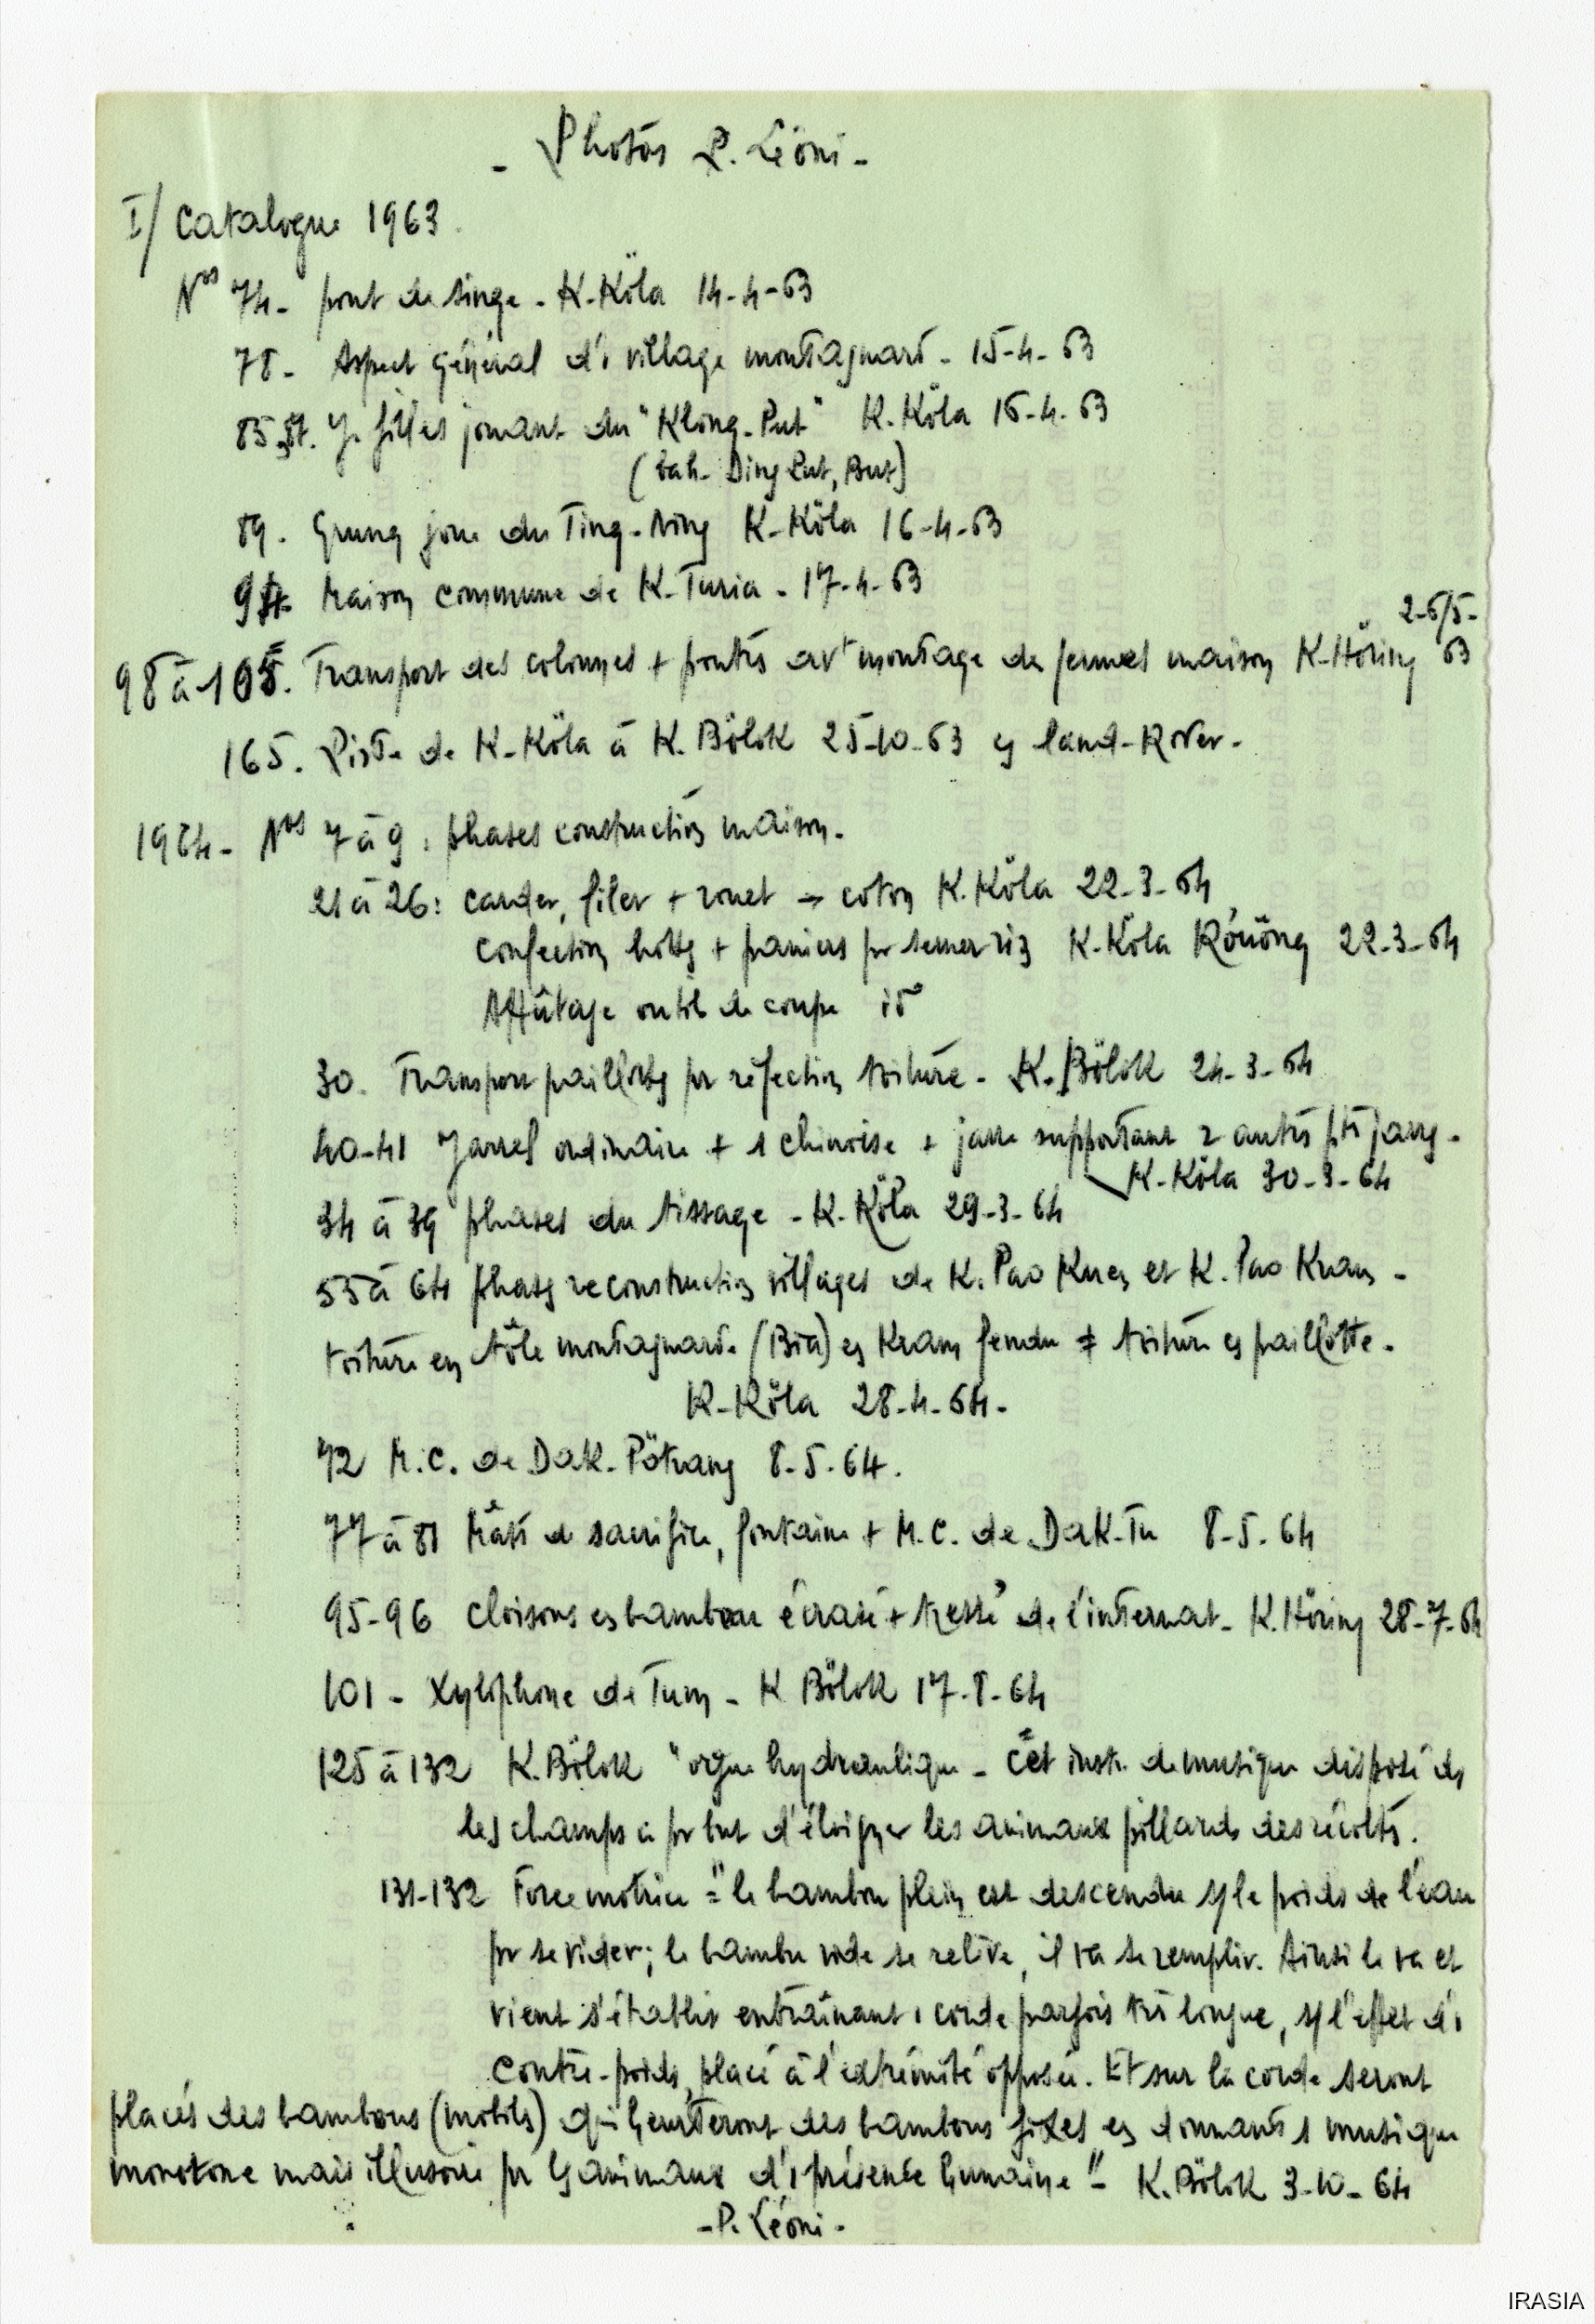 - Photos P. Léoni -
I/ Catalogue 1963.
Nos 74 - pont de singe - K. Köla 14-4-63
78 - Aspect général d'1 village montagnard - 15-4-63
85 J. filles jouant du "Klong-Put" K. Köla 16-4-63
(bah. Ding Put, But)
89. Grung joue du Ting-Ning K-Köla 16-4-63
Maison commune de K-Turia - 17-4-63
2-6/5-
98 à 105. Transport des colonnes + poutres avt montage de fermes maison K-Höring 63
165. Piste de K-Köla à K. Bölok 25-10-63 en land-Rover -
1964 - Nos 7 à 9 : phases construction maison -
21 à 26 : carder, filer + rouet → coton K. Köla 22-3-64
confection hottes + paniers pr semer riz K-Köla 22-3-64
Affûtage outils de coupe id°
30. Transport paillottes pr réfection toiture - K. Bölok 24-3-64
40-41 Jarres ordinaire + 1 chinoise + jarre supportant 2 autres ptes jarres -
K-Köla 30-3-64
34 à 39 phases du tissage - K. Köla 29-3-64
55 à 64 phases reconstruction villages de K. Pao Kueng et K. Pao Kram -
toiture en tôle montagnarde (Bia) en Kram fendu ≠ toiture en paillotte -
K-Köla 28-4-64 -
72 M.C. de Dak-Pötrang 8-5-64.
77 à 81 Mâts de sacrifice, fontaine + M.C. de Dak-Tu 8-5-64
95-96 Cloisons en bambou écrasé + tressé de l'internat - K. Höring 28-7-64
101 - Xylophone de Tum - K Bölok 17-8-64
125 à 132 K. Bölok "orgue hydraulique - Cet instr. de musique disposé ds
les champs a pr but d'éloigner les animaux pillards des récoltes.
131-132 Force motrice = "le bambou plein est descendu s/ le poids de l'eau
pr se vider ; le bambou vide se relève, il va se remplir. Ainsi le va et
vient s'établit entraînant 1 corde parfois très longue, s/ l'effet d'1
contre-poids, placé à l'extrémité opposée. Et sur la corde seront
placés des bambous (mobiles) qui heurteront des bambous fixes en donnant 1 musique
monotone mais illusoire pr les animaux d'1 présence humaine" - K. Bölok 3-10-64
- P. Léoni -
IRASIA